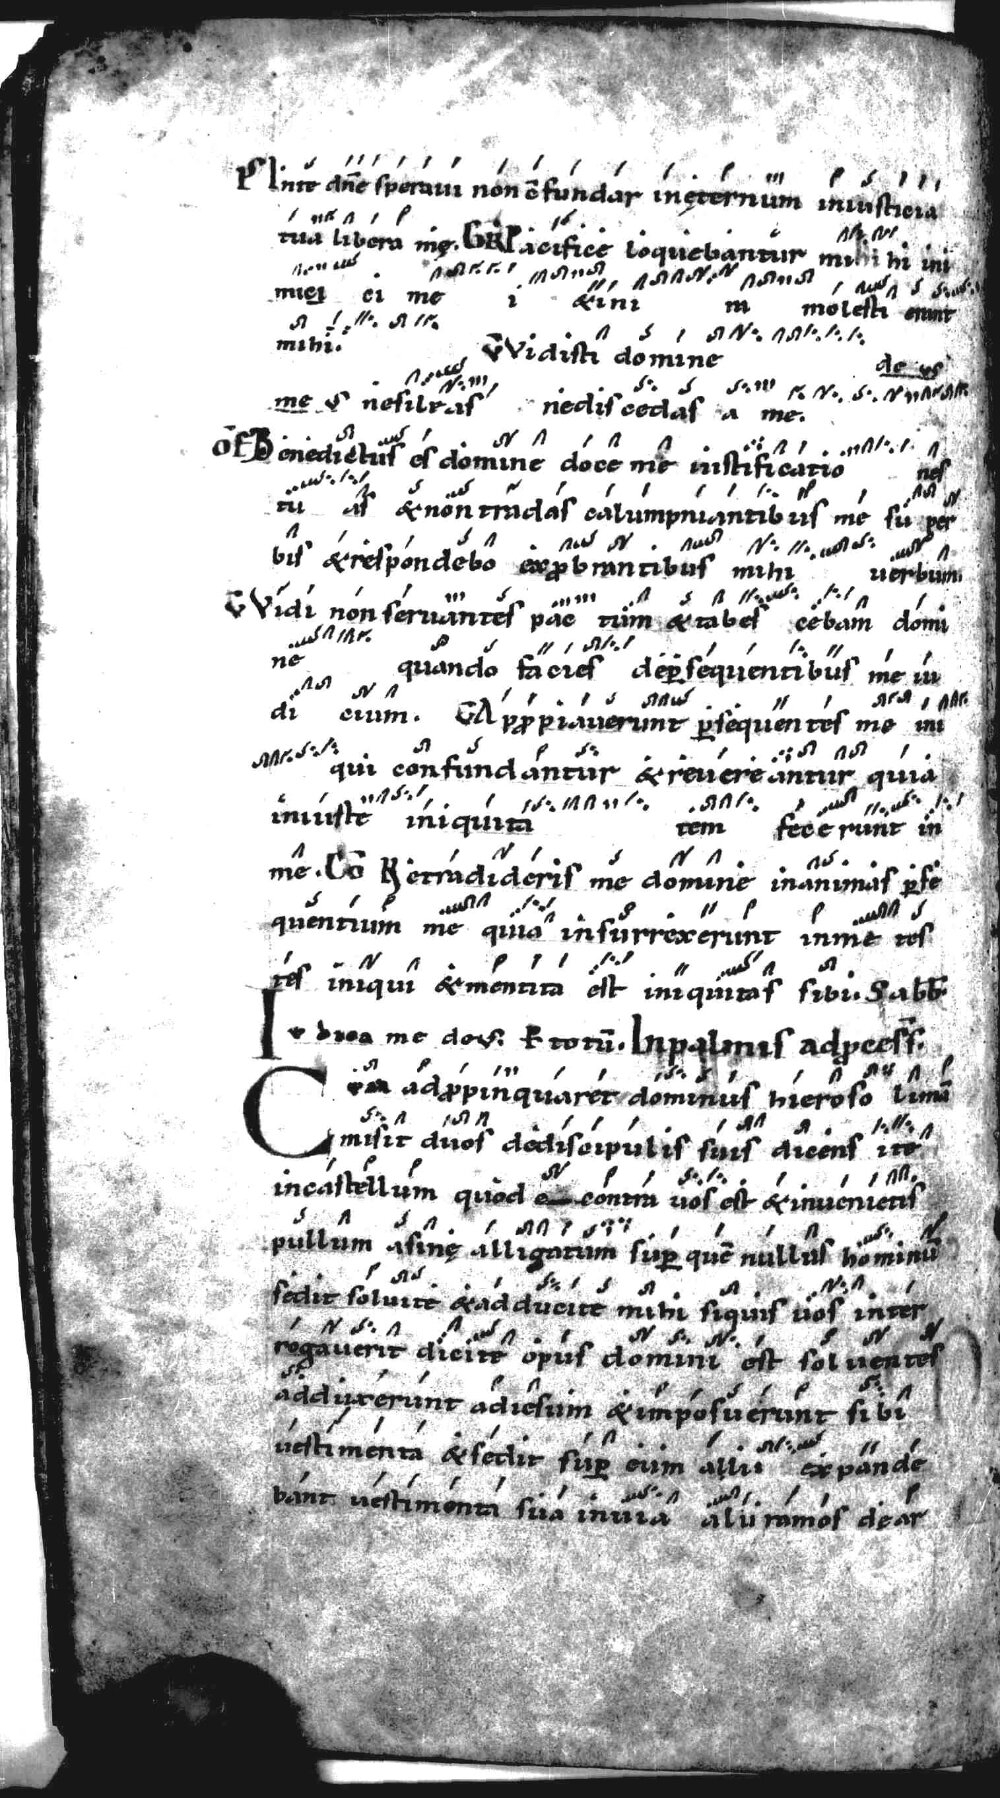 PS In te dne speraui non c̄fundar in ęternum in iusticia
tua libera mę. GR Pacifice loquebantur mihi hi ini
mici ei me i & in i m molesti erunt
mihi. V Vidisti domine de us
me us ne sileas ne discedas a me.
OF Benedictus es domine doce me iustificatio nes
tu as & non tradas calumpniantibus me su per
bis & respondebo exprobrantibus mihi uerbum.
V Vidi non seruantes pac tum & tabes cebam domi
ne quando facies de p̲sequentibus me iu
di cium. V Appropiauerunt p̲sequentes me ini
qui confundantur & reuereantur quia
iniuste iniquita tem fecerunt in
me. CO Ne tradideris me domine in animas p̲se
quentium me quia insurrexerunt in me tes
tes iniqui & mentita est iniquitas sibi. Sabb.
Iudica me deus. R totū. In palmis ad processs̄.
Cum adpropinquaret dominus hierosolimā
misit duos de discipulis suis dicens ite
in castellum quod e contra uos est & inuenietis
pullum asinę alligatum sup̲ quē nullus hominū
sedit soluite & adducite mihi siquis uos inter
rogauerit dicite opus domini est soluentes
adduxerunt ad iesum & imposuerunt sibi
uestimenta & sedit sup̲ eum alii expande
bant uestimenta sua in uia alii ramos de ar